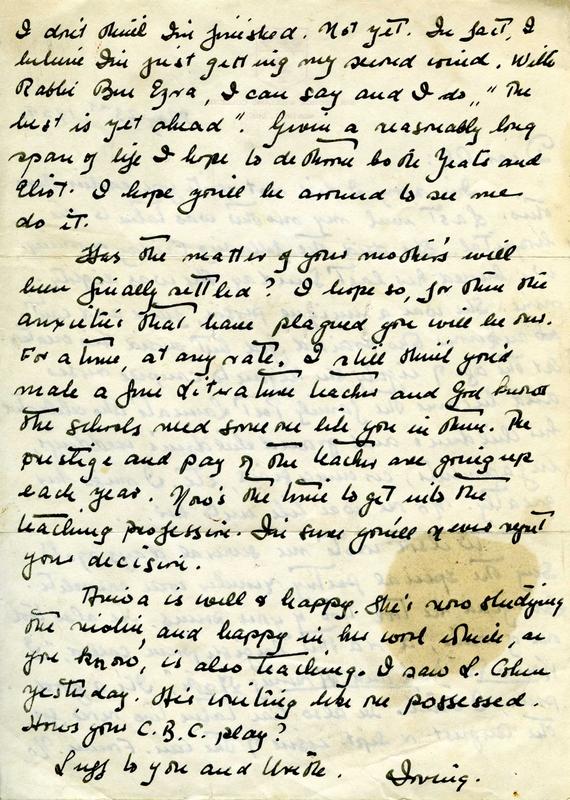 I don't think I'm finished. Not yet. In fact, I
believe I'm just getting my second wind. With
Rabbi Ben Ezra, I can say and I do, "The
best is yet ahead". Given a reasonably long
span of life I hope to dethrone both Yeats and
Eliot. I hope you'll be around to see me
do it.
Has the matter of your mother's will
been finally settled? I hope so, for then the
anxieties that have plagued you will be over.
For a time, at any rate. I still think you'd
make a fine literature teacher and God knows
the schools need someone like you in them. The
prestige and pay of the teacher are going up
each year. Now's the time to get into the
teaching profession. I'm sure you'll never regret
your decision.
Aviva is well & happy. She's now studying
the violin, and happy in her work which, as
you know, is also teaching. I saw L. Cohen
yesterday. He's writing like one possessed.
How's your C.B.C. play?
to you and
Irving.